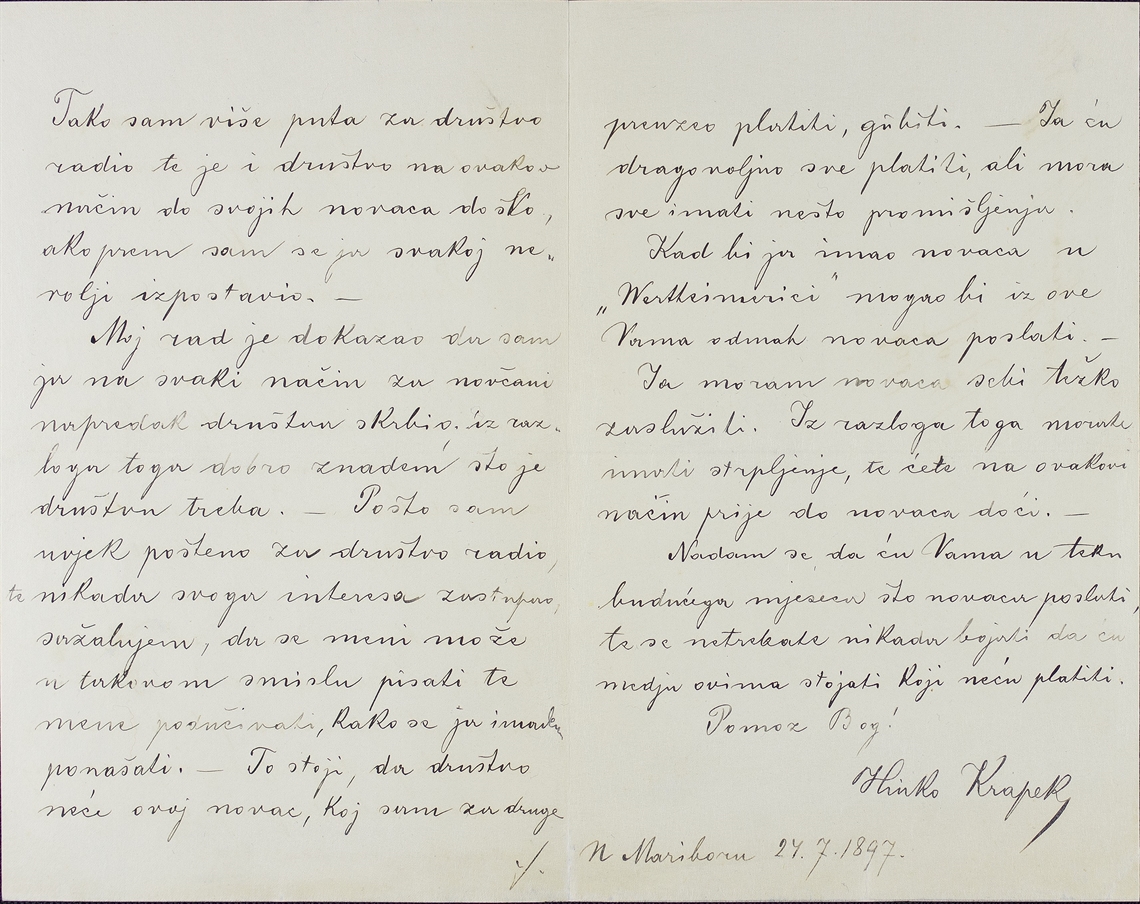 Tako sam više puta za društvo
radio te je i društvo na ovakov
način do svojih novaca došlo,
akoprem sam se ja svakoj ne„
volji izpostavio. —
Moj rad je dokazao da sam
ja na svaki način za novčani
napredak društva skrbio, iz raz„
loga toga dobro znadem što je
društvu treba. — Pošto sam
uvjek pošteno za društvo radio,
te nikada svoga interesa zastupao,
sažalujem, da se meni može
u takovom smislu pisati te
mene podučivati, kako se ja imadem
ponašati. — To stoji, da društvo
neće ovoj novac, koj sam za druge
./.
preuzeo platiti, gubiti. — Ja ću
dragovoljno sve platiti, ali mora
sve imati nešto promišljenja.
Kad bi ja imao novaca u
„Wertheimerici“ mogao bi iz ove
Vama odmah novaca poslati. —
Ja moram novaca sebi težko
zaslužiti. Iz razloga toga morate
imati strpljenje, te ćete na ovakovi
način prije do novaca doći. —
Nadam se da ću Vama u teku
budućega mjeseca što novaca poslati,
te se netrebate nikada bojati da ću
medju ovima stojati koji neću platiti.
Pomoz Bog!
Hinko Krapek
U Mariboru 24.7.1897.